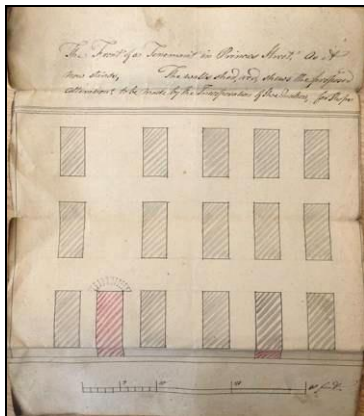 The Front of a Tenement in Princes Street, As it
now stands, The walls shad, red, shows the proposed
alterations to be made by the Incorporation of
10 40 feet